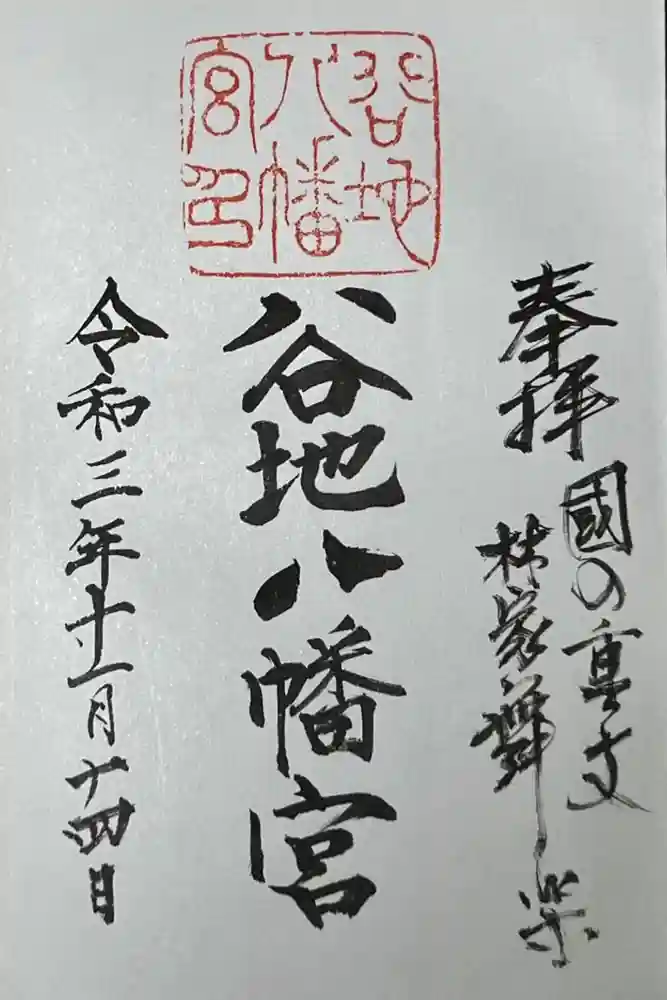 谷地
八幡
宮印
奉拝
國の重文
林家舞楽
谷地八幡宮
令和三年十一月十四日